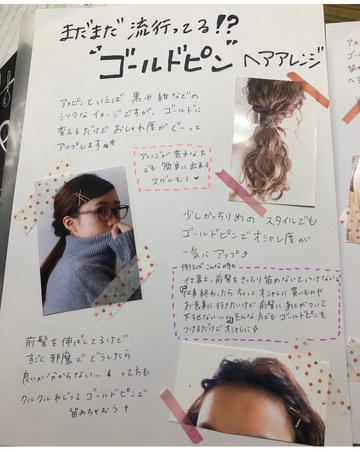 まだまだ 流行ってる!?
"ゴールドピン" ヘアアレンジ
アメピンといえば 黒や紺などの
シックなイメージですが、ゴールドに
変えるだけで おしゃれ度が ぐーっと
アップします
アレンジが苦手な方
でも 簡単に出来る
スグレモノ♡
少しがっちりめの スタイルでも
ゴールドピンで オシャレ度が
一気に アップ
例えばこんな時も
仕事上、前髪をきっちり 留めないといけない
仕事終わったら ちょっと オシャレに 買いものや
お食事に行きたいけど 前髪に あとがついて
下ろせない… そんな方でも ゴールドピンを
つけるだけで オシャレに
前髪を 伸ばしてるけど
すごく 邪魔で どうしたら
良いか分からない… って方も
クルクルねじって ゴールドピンで
留めちゃおう↑